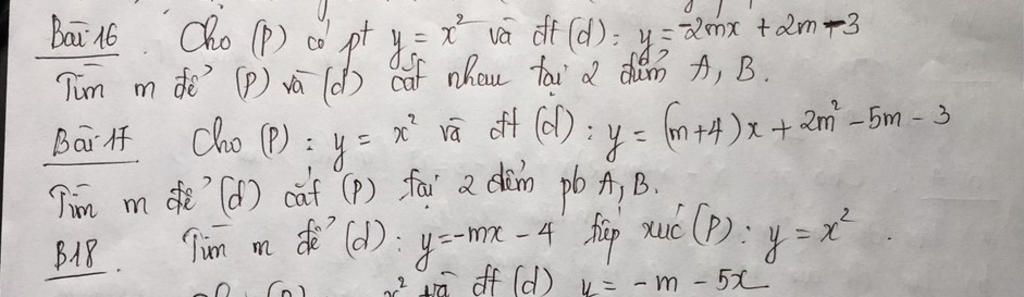 Bài 16. Cho (P) có pt y = x² và đt (d): y = -2mx + 2m - 3
Tìm m để (P) và (d) cắt nhau tại 2 điểm A, B.
Bài 17 Cho (P): y = x² và đt (d): y = (m+4)x + 2m² - 5m - 3
Tìm m để (d) cắt (P) tại 2 điểm pb A, B.
B18. Tìm m để (d): y = -mx - 4 tiếp xúc (P): y = x².
x² và đt (d) y = -m - 5x